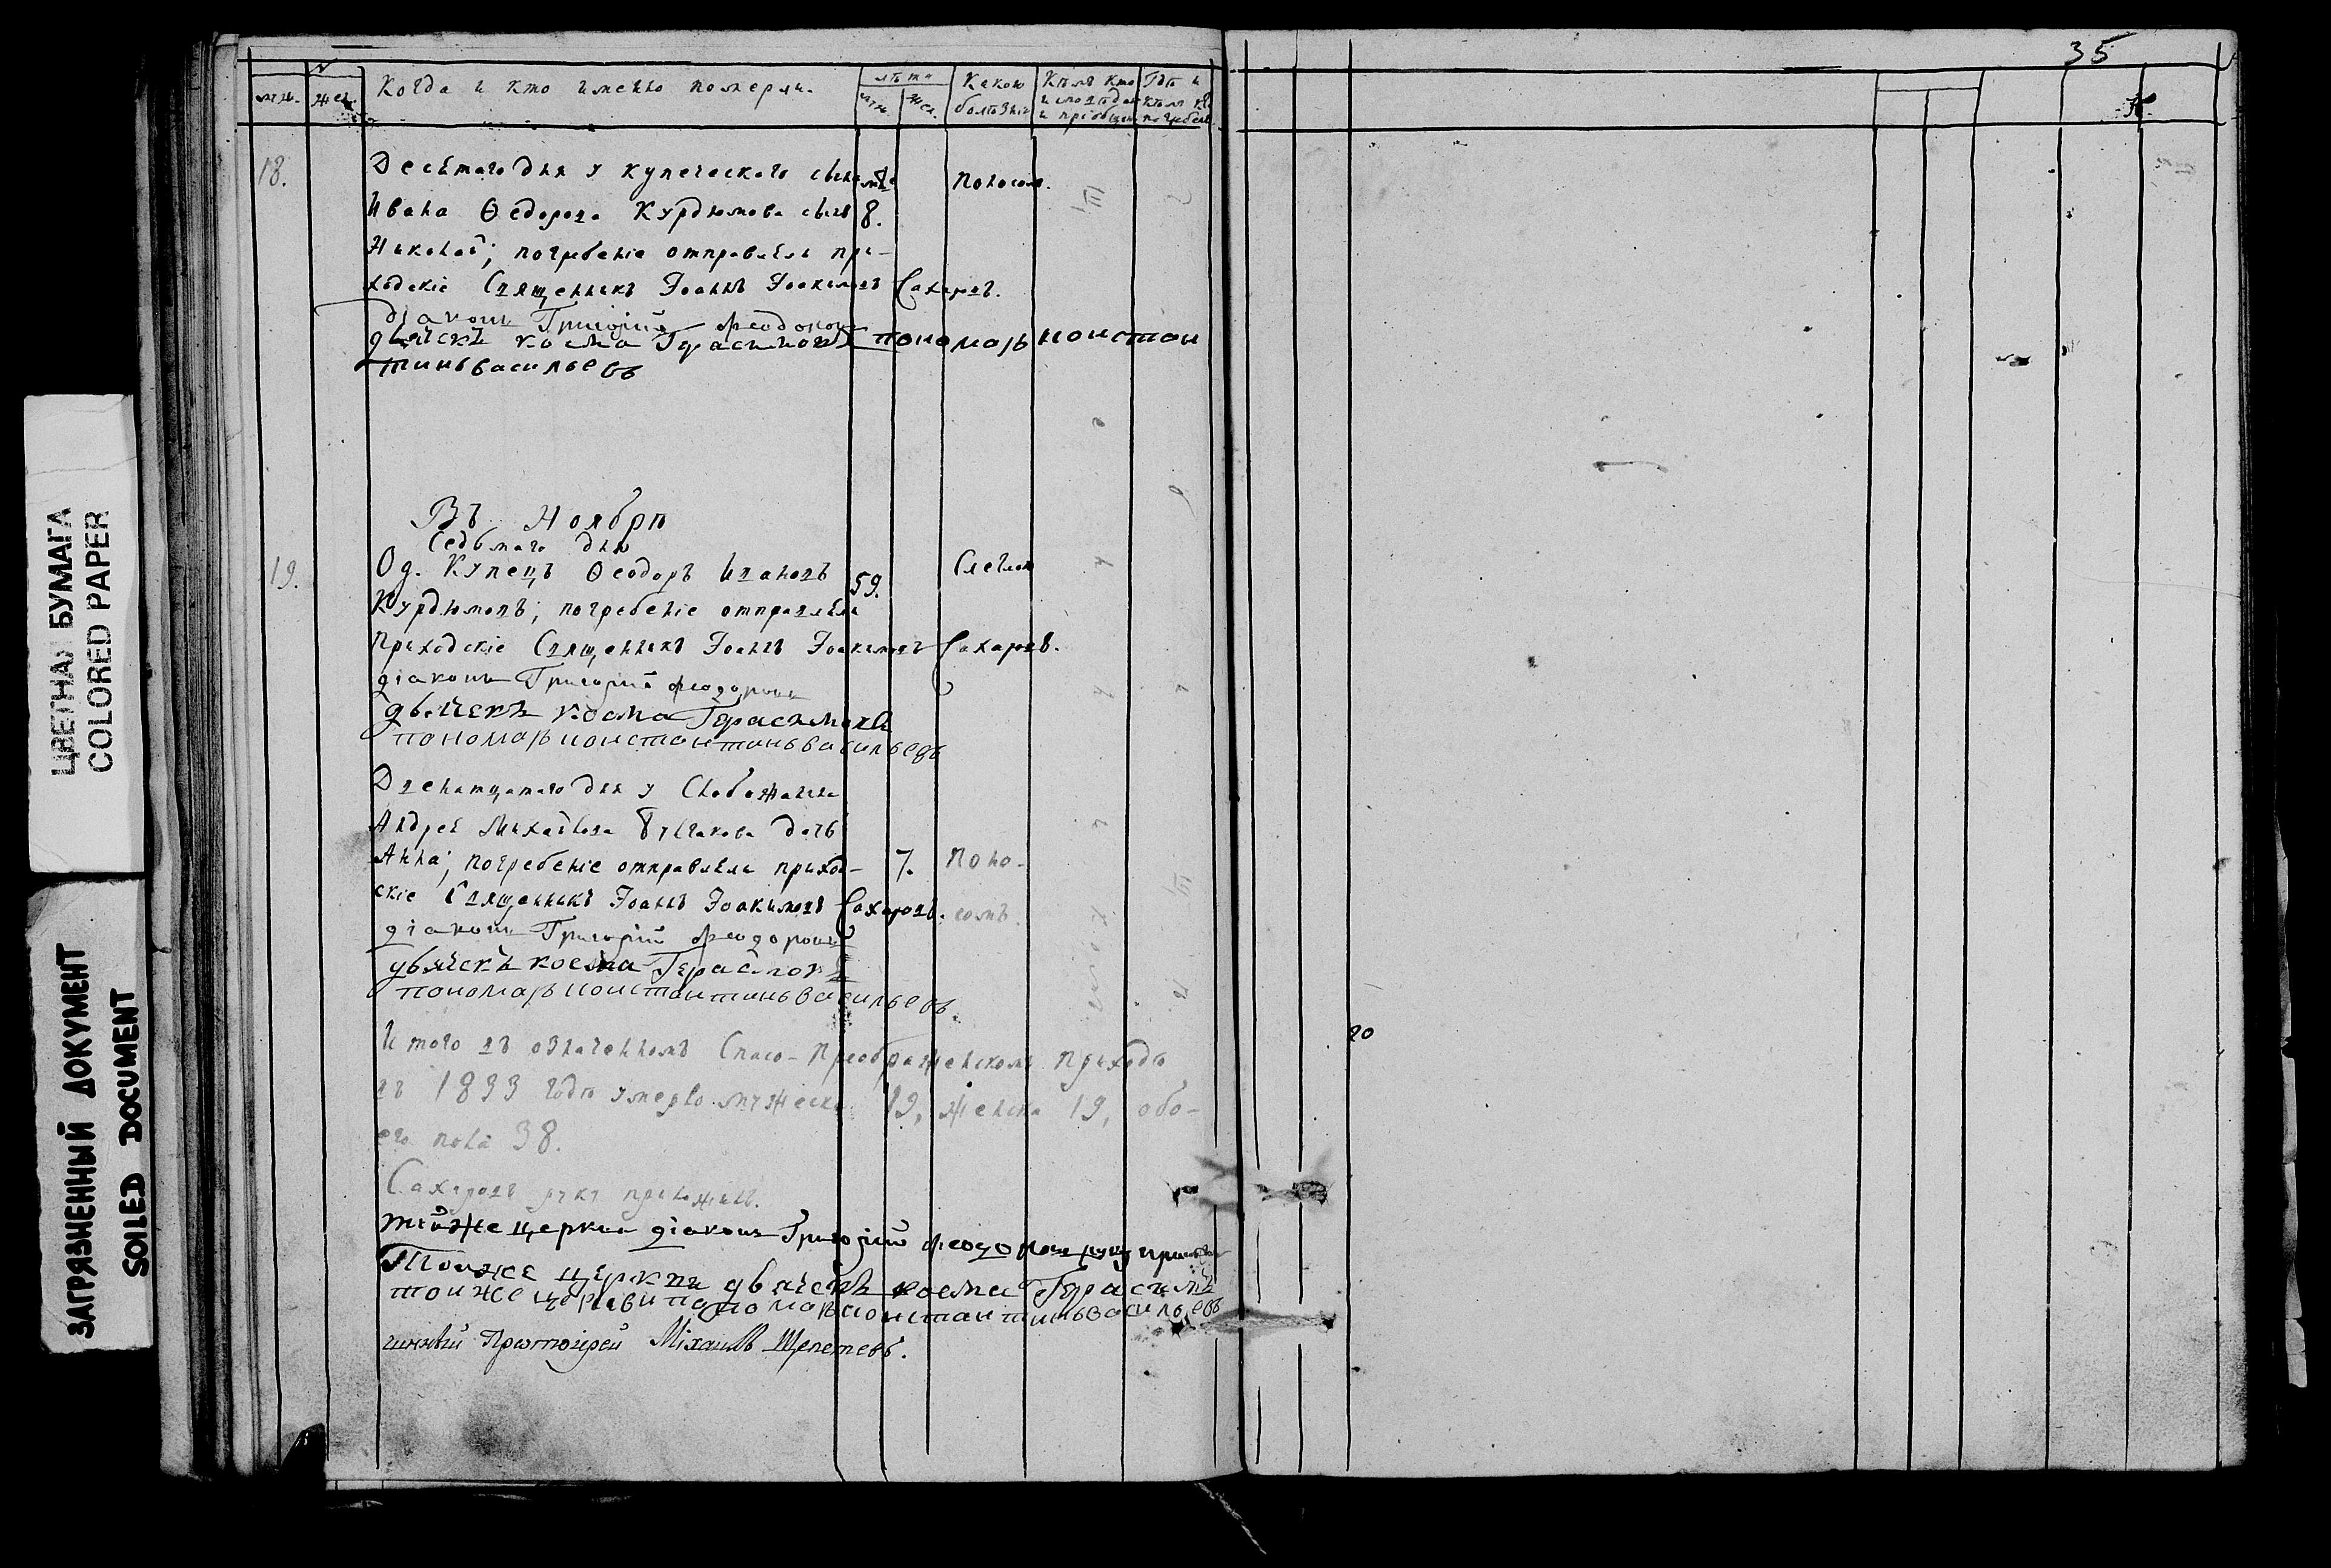 35
муж. жен. Когда и кто именно померли. лѣта муж. жен. Какою болѣзнію Кѣмъ кто исповѣдан и пріобщен Гдѣ и кѣмъ погребен
18. Десятаго дня у купеческаго сына Поносомъ.
Ивана Ѳедорова Курдюмова сынъ 8.
Николай; погребеніе отправляли при-
ходскіе Священникъ Іоаннъ Іоакимовъ Сахаровъ.
діаконъ Григорій Феодоровъ
дьячекъ косма Герасимовъ пономарь констан
тинъ васильевъ
Въ Ноябрѣ
Седьмаго дня
19. Од. Купецъ Ѳеодоръ Ивановъ 59.
Курдюмовъ; погребеніе отправляли
Приходскіе Священникъ Іоаннъ Іоакимовъ Сахаровъ.
діаконъ Григорій феодоровъ
дьячекъ косма Герасимовъ
пономарь константинъ васильевъ
Двенатцатаго дня у Слобожанина
Андрея Михайлова дочь
Анна; погребеніе отправляли приход- 7. Поно-
скіе Священникъ Іоаннъ Іоакимовъ Сахаровъ. сомъ.
діаконъ Григорій феодоровъ
дьячекъ косма Герасимовъ
пономарь константинъ васильевъ.
Итого въ означенномъ Спасо-Преображенскомъ приходѣ
въ 1833 годѣ умерло мужеска 19, женска 19, обо-
его пола 38.
20
Сахаровъ руку приложилъ.
тойже церкви діаконъ Григорій феодоровъ руку
Тойже церкви дьячекъ косма Герасимъ
тойже церкви пономарь константинъ васильевъ
чинный Протоіерей Міхаилъ Щепетевъ.
ЦВЕТНАЯ БУМАГА
COLORED PAPER
ЗАГРЯЗНЕННЫЙ ДОКУМЕНТ
SOILED DOCUMENT